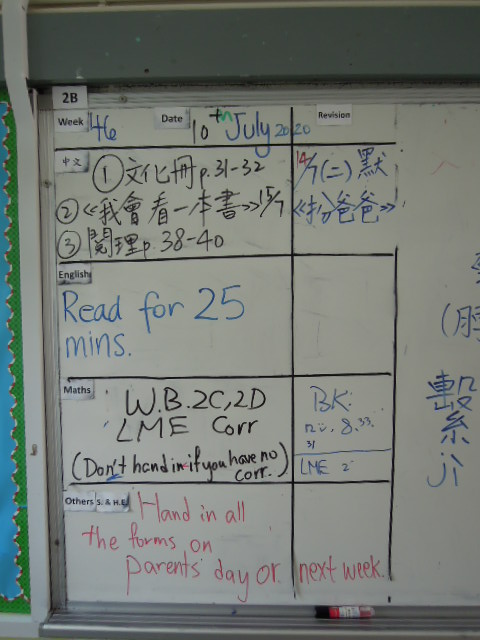 2B
Week 46 Date 10th July 2020 Revision
中文
① 文化冊 p.31-32
② 《我會看一本書》 15/7
③ 閱理 p.38-40
14/7(二) 默
《扮爸爸》
English
Read for 25
mins.
Maths
W.B. 2C, 2D
LME Corr
(Don't hand in if you have no
corr.)
BK:
8.
31
LME 2
Others S. & H.E
Hand in all
the forms on
parents' day or next week.
繫
ji